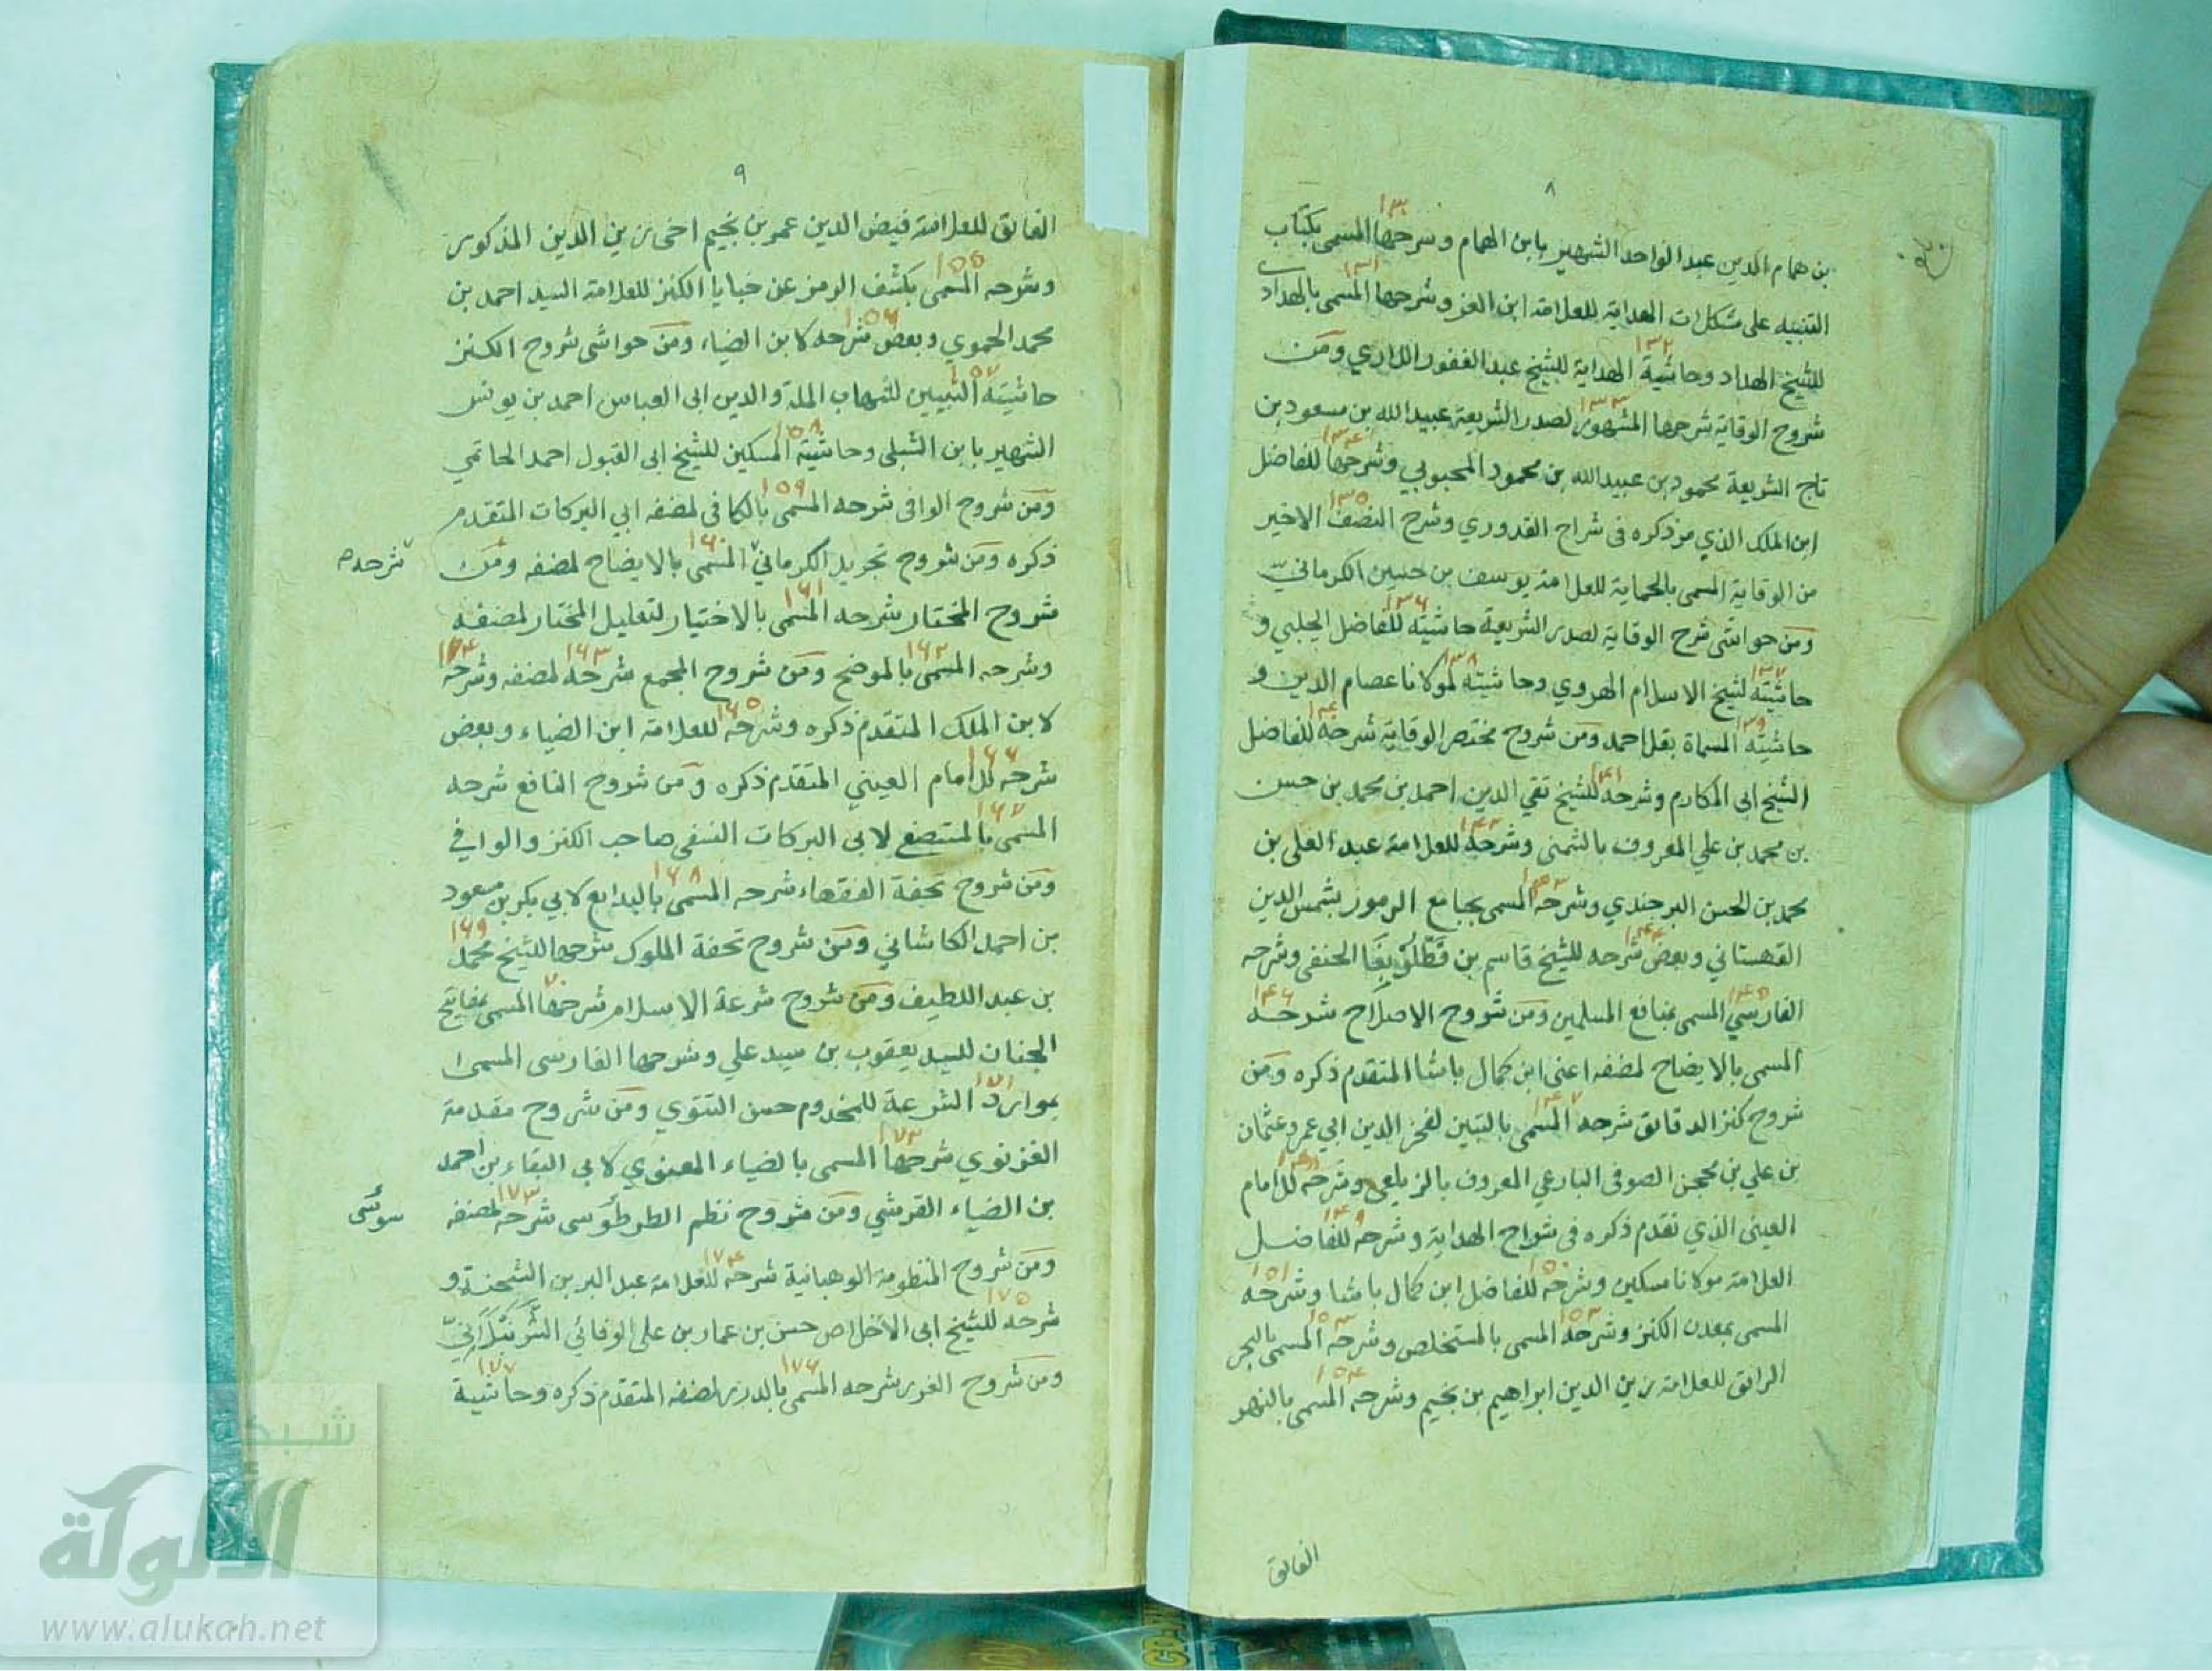 ٨
بن همام الدين عبد الواحد الشهير بابن الهمام وشرحها المسمى بكتاب ١٣٠
التنبيه على مشكلات الهداية للعلامة ابن العز وشرحها المسمى بالهداد ١٣١
للشيخ الهداد وحاشية الهداية للشيخ عبد الغفور اللاري ومن ١٣٢
شروح الوقاية شرحها المشهور لصدر الشريعة عبيد الله بن مسعود بن ١٣٣
تاج الشريعة محمود بن عبيد الله بن محمود المحبوبي وشرحها للفاضل ١٣٤
ابن الملك الذي مر ذكره في شراح القدوري وشرح النصف الاخير ١٣٥
من الوقاية المسمى بالحماية للعلامة يوسف بن حسين الكرماني
ومن حواشى شرح الوقاية لصدر الشريعة حاشيته للفاضل الچلبي و ١٣٦
حاشيته لشيخ الاسلام الهروي وحاشيته لمولانا عصام الدين و ١٣٧ ١٣٨
حاشيته المسماة بقل احمد ومن شروح مختصر الوقاية شرحه للفاضل ١٣٩ ١٤٠
الشيخ ابى المكارم وشرحه للشيخ تقي الدين احمد بن محمد بن حسن ١٤١
بن محمد بن علي المعروف بالشمنى وشرحه للعلامة عبد العلى بن ١٤٢
محمد بن الحسن البرجندي وشرحه المسمى بجامع الرموز بشمس الدين ١٤٣
القهستاني وبعض شرحه للشيخ قاسم بن قطلوبغا الحنفى وشرحه ١٤٤
الفارسي المسمى بمنافع المسلمين ومن شروح الاصلاح شرحه ١٤٥ ١٤٦
المسمى بالايضاح لمصنفه اعنى ابن كمال باشا المتقدم ذكره ومن
شروح كنز الدقائق شرحه المسمى بالتبيين لفخر الدين ابي عمرو عثمان ١٤٧
بن علي بن محجن الصوفى البارعي المعروف بالزيلعى وشرحه للامام ١٤٨
العينى الذي تقدم ذكره في شراح الهداية وشرحه للفاضل ١٤٩
العلامة مولانا مسكين وشرحه للفاضل ابن كمال باشا وشرحه ١٥٠ ١٥١
المسمى بمعدن الكنز وشرحه المسمى بالمستخلص وشرحه المسمى بالبحر ١٥٢ ١٥٣
الرائق للعلامة زين الدين ابراهيم بن نجيم وشرحه المسمى بالنهر ١٥٤
الفائق
٩
الفائق للعلامة فيض الدين عمر بن نجيم اخى زين الدين المذكور
وشرحه المسمى بكشف الرمز عن خبايا الكنز للعلامة السيد احمد بن ١٥٥
محمد الحموي وبعض شرحه لابن الضياء ومن حواشى شروح الكنز ١٥٦
حاشيته التبيين لشهاب الملة والدين ابى العباس احمد بن يونس ١٥٧
الشهير بابن الشبلى وحاشيته المسكين للشيخ ابى القبول احمد الحاتمي ١٥٨
ومن شروح الوافى شرحه المسمى بالكافى لمصنفه ابي البركات المتقدم ١٥٩
ذكره ومن شروح تجريد الكرماني المسمى بالايضاح لمصنفه ومن ١٦٠
شرحه
شروح المختار شرحه المسمى بالاختيار لتعليل المختار لمصنفه ١٦١
وشرحه المسمى بالموضح ومن شروح المجمع شرحه لمصنفه وشرحه ١٦٢ ١٦٣ ١٦٤
لابن الملك المتقدم ذكره وشرحه للعلامة ابن الضياء وبعض ١٦٥
شرحه للامام العيني المتقدم ذكره ومن شروح النافع شرحه ١٦٦
المسمى بالمستصفع لابى البركات النسفى صاحب الكنز والوافي ١٦٧
ومن شروح تحفة الفقهاء شرحه المسمى بالبدايع لابي بكر بن مسعود ١٦٨
بن احمد الكاشاني ومن شروح تحفة الملوك شرحها للشيخ محمد ١٦٩
بن عبد اللطيف ومن شروح شرعة الاسلام شرحها المسمى بمفاتيح ٧٠
الجنان للسيد يعقوب بن سيد علي وشرحها الفارسى المسمى
بموارد الشرعة للمخدوم حسن التتوي ومن شروح مقدمة ١٧١
الغزنوي شرحها المسمى بالضياء المعنوي لابى البقاء بن احمد ١٧٢
بن الضياء القرشي ومن شروح نظم الطرطوسى شرحه لمصنفه ١٧٣
سوسى
ومن شروح المنظومة الوهبانية شرحه للعلامة عبد البر بن الشحنة و ١٧٤
شرحه للشيخ ابى الاخلاص حسن بن عمار بن على الوفائي الشرنبلاني ١٧٥
ومن شروح الغرر شرحه المسمى بالدرر لمصنفه المتقدم ذكره وحاشية ١٧٦ ١٧٧
شبكة
الألوكة
www.alukah.net